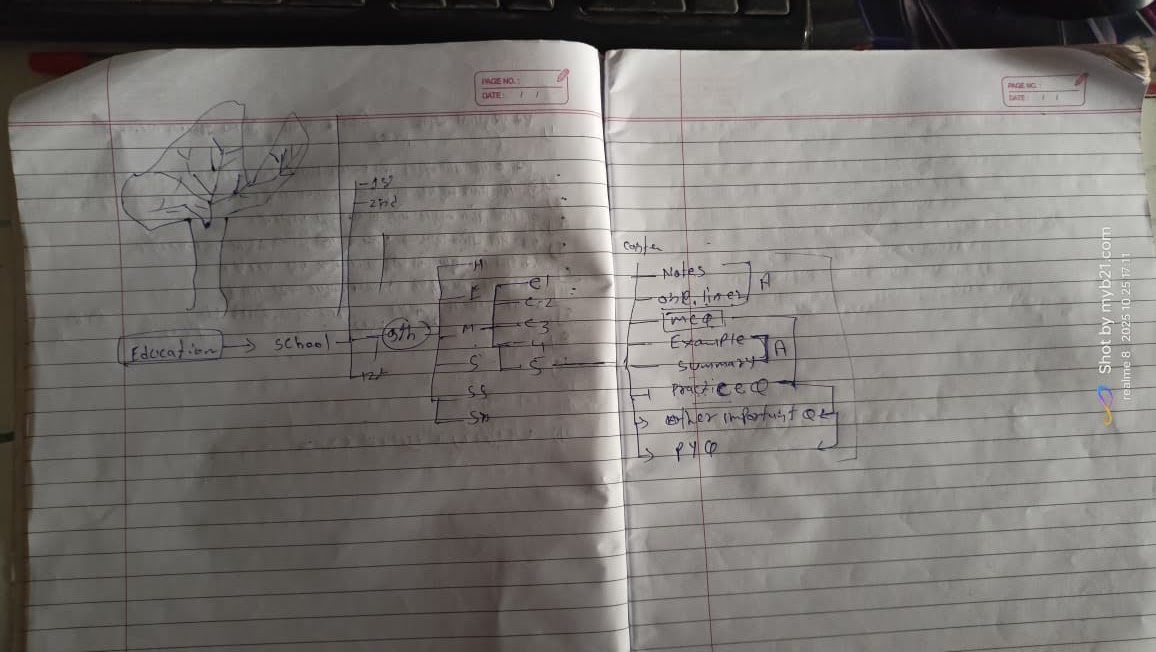 PAGE NO.:
DATE: / /
PAGE NO.:
DATE: / /
1st
2nd
Education → School
9th
12t
H
E
M
S
SS
Sn
C1
C2
C3
4
5
Notes
one liner
A
MCQ
Example
Summary
A
Practice Q
other important Q
PYQ
Shot by myb21.com
realme 8 2025.10.25 17:11